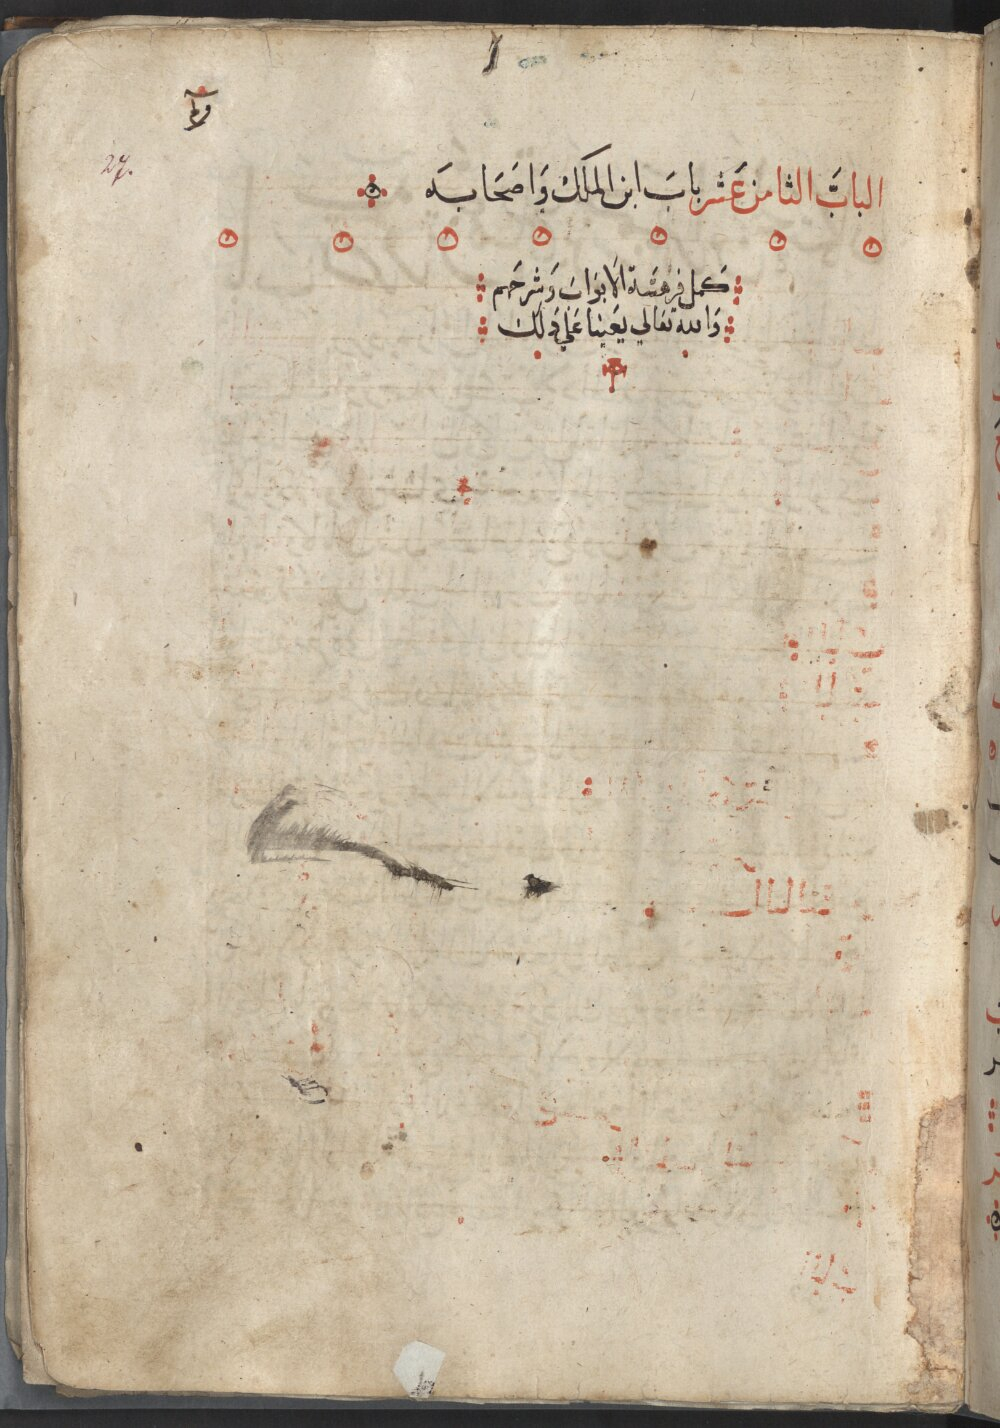 27.
الباب الثامن عشر باب ابن الملك واصحابه
كمل فرهسة الابواب وشرحهم
والله تعالي يعيننا علي ذلك